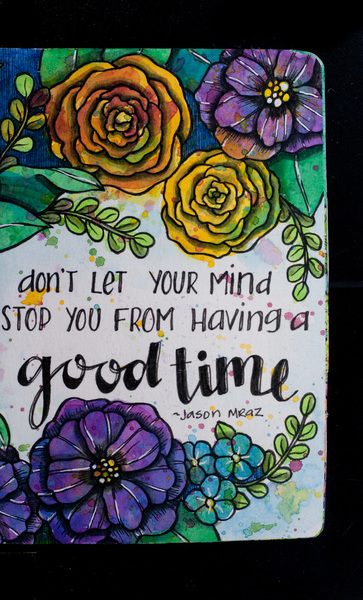 don't LET YOUR Mind
STOP YOU FROM Having a
good time
~Jason Mraz